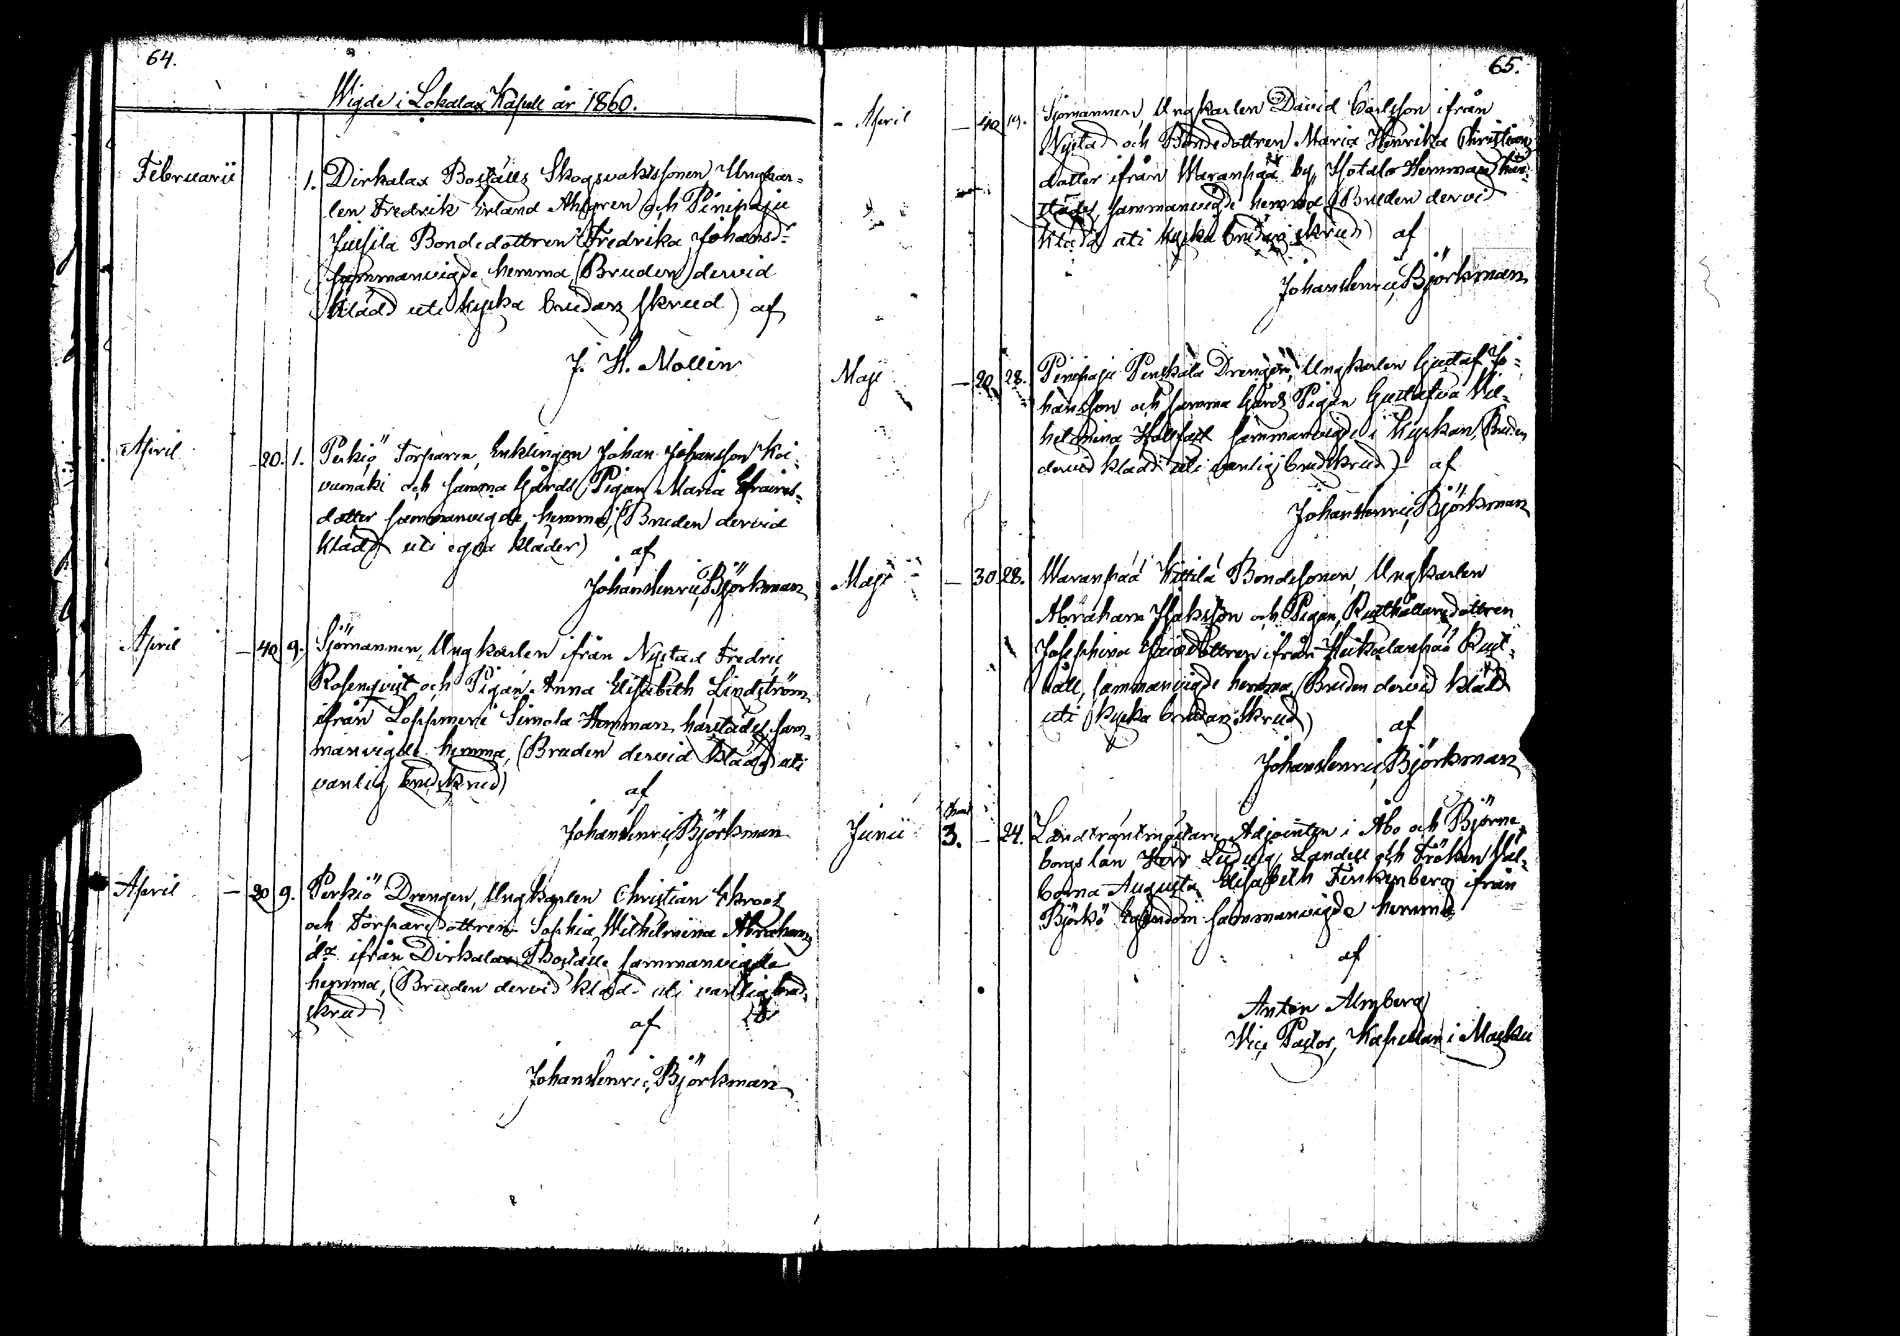 64.
Wigde i Lokalax Kapell år 1860.
Februarii 1. Dirkalax Boställs Skogsvaktssonen Ungkar-
len Fredrik Erland Ahlgren och Pinipaju
Jussila Bondedottren Fredrika Johansdr
sammanvigde hemma (Bruden dervid
klädd uti kyrka brudens skrud) af
J. H. Mollin
April 20. 1. Perkiö Torparen, Enklingen Johan Johansson Koi-
vumäki och samma Gårds Pigan Maria Efraims-
dotter sammanvigde hemma, (Bruden dervid
klädd uti egna kläder) af
Johan Henric Björkman
April — 40 9. Sjömannen, Ungkarlen ifrån Nystad Fredric
Rosenqvist och Pigan Anna Elisabeth Lindström
ifrån Loppmeri Simola Hemman härstädes sam-
manvigde hemma, (Bruden dervid klädd uti
vanlig brudskrud) af
Johan Henric Björkman
April — 20 9. Perkiö Drengen, Ungkarlen Christian Ekroos
och Torparedottren Sophia Wilhelmina Abrahams
dr ifrån Dirkalax Boställe sammanvigde
hemma, (Bruden dervid klädd uti vanlig brud-
skrud) af
Johan Henric Björkman
65.
April — 40 19. Sjömannen Ungkarlen David Carlsson ifrån
Nystad och Bondedottren Maria Henrika Christians
dotter ifrån Waranpää by, Hemman här-
städes, sammanvigde hemma (Bruden dervid
klädd uti kyrka brudens skrud) af
Johan Henric Björkman
Maji — 20 28. Pinipaju Penkala Drengen, Ungkarlen Gustaf Jo-
hansson och samma Gårds Pigan Gustafva Vil-
helmina sammanvigde i Kyrkan, (Bruden
dervid klädd uti vanlig brudskrud) af
Johan Henric Björkman
Maji — 30 28. Waranpää Kittilä Bondesonen, Ungkarlen
Abraham Isaksson och Pigan, Rusthållaredottren
Josephina ifrån Rust-
håll, sammanvigde hemma, (Bruden dervid klädd
uti kyrka brudens skrud) af
Johan Henric Björkman
Junii 3. — 24. Landträntmästare Adjointen i Åbo och Björne-
borgs län Herr Ludvig Landell och Fröken Val-
borna Augusta Elisabeth Finkenberg ifrån
Björkö Egendom sammanvigde hemma
af
Anton Almberg
Vice Pastor, Kapellan i Masku